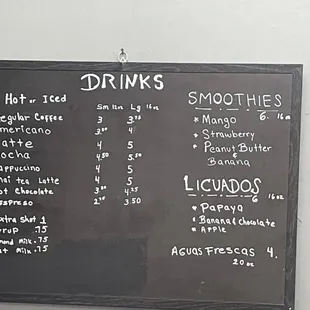 DRINKS
Hot or Iced
Sm 12oz Lg 16oz
egular Coffee 3
mericano 4
atte 4 5
ocha 4.50 5.50
appuccino 4 5
hai tea Latte 4 5
ot Chocolate 4.25
sspreso 3.50
xtra Shot 1
yrup .75
mond Milk .75
at Milk .75
SMOOTHIES
6. 16oz
* Mango
* Strawberry
* Peanut Butter
&
Banana
LICUADOS
6 16oz
* Papaya
* Banana & Chocolate
* Apple
Aguas Frescas 4.
20oz